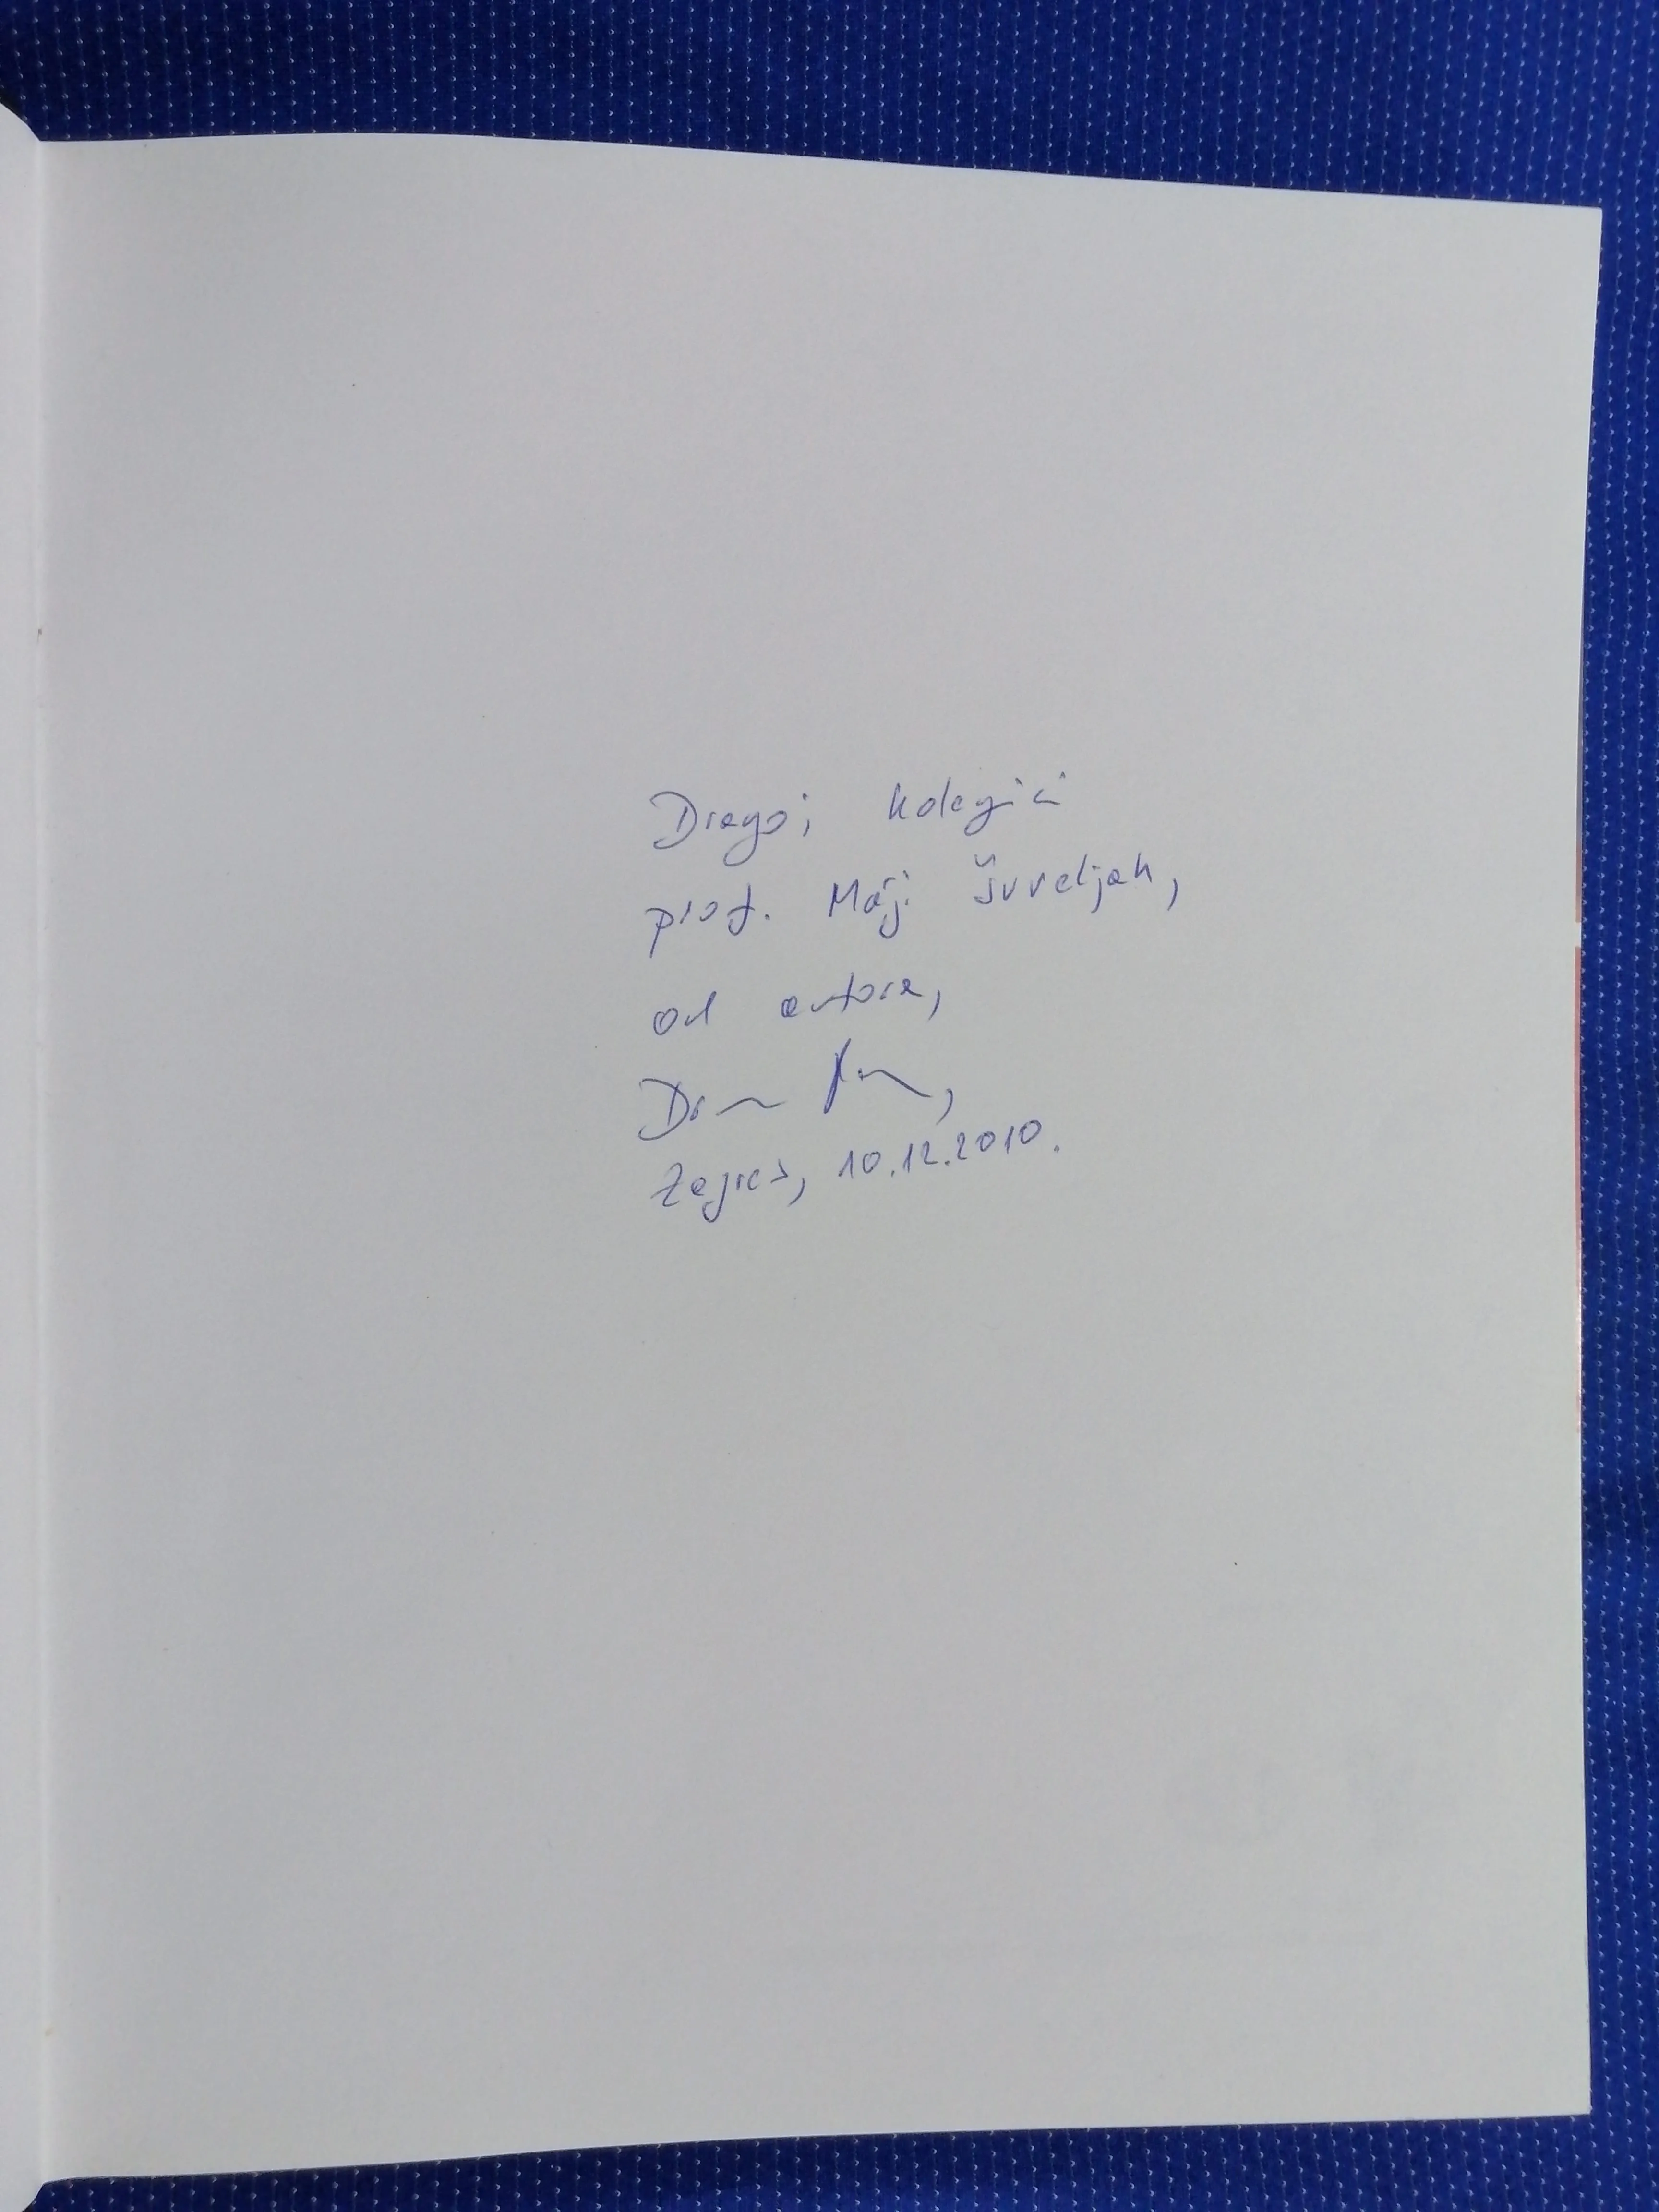 Dragoj kolegici
prof. Maji Šurveljak,
od autora,
Zagreb, 10.12.2010.